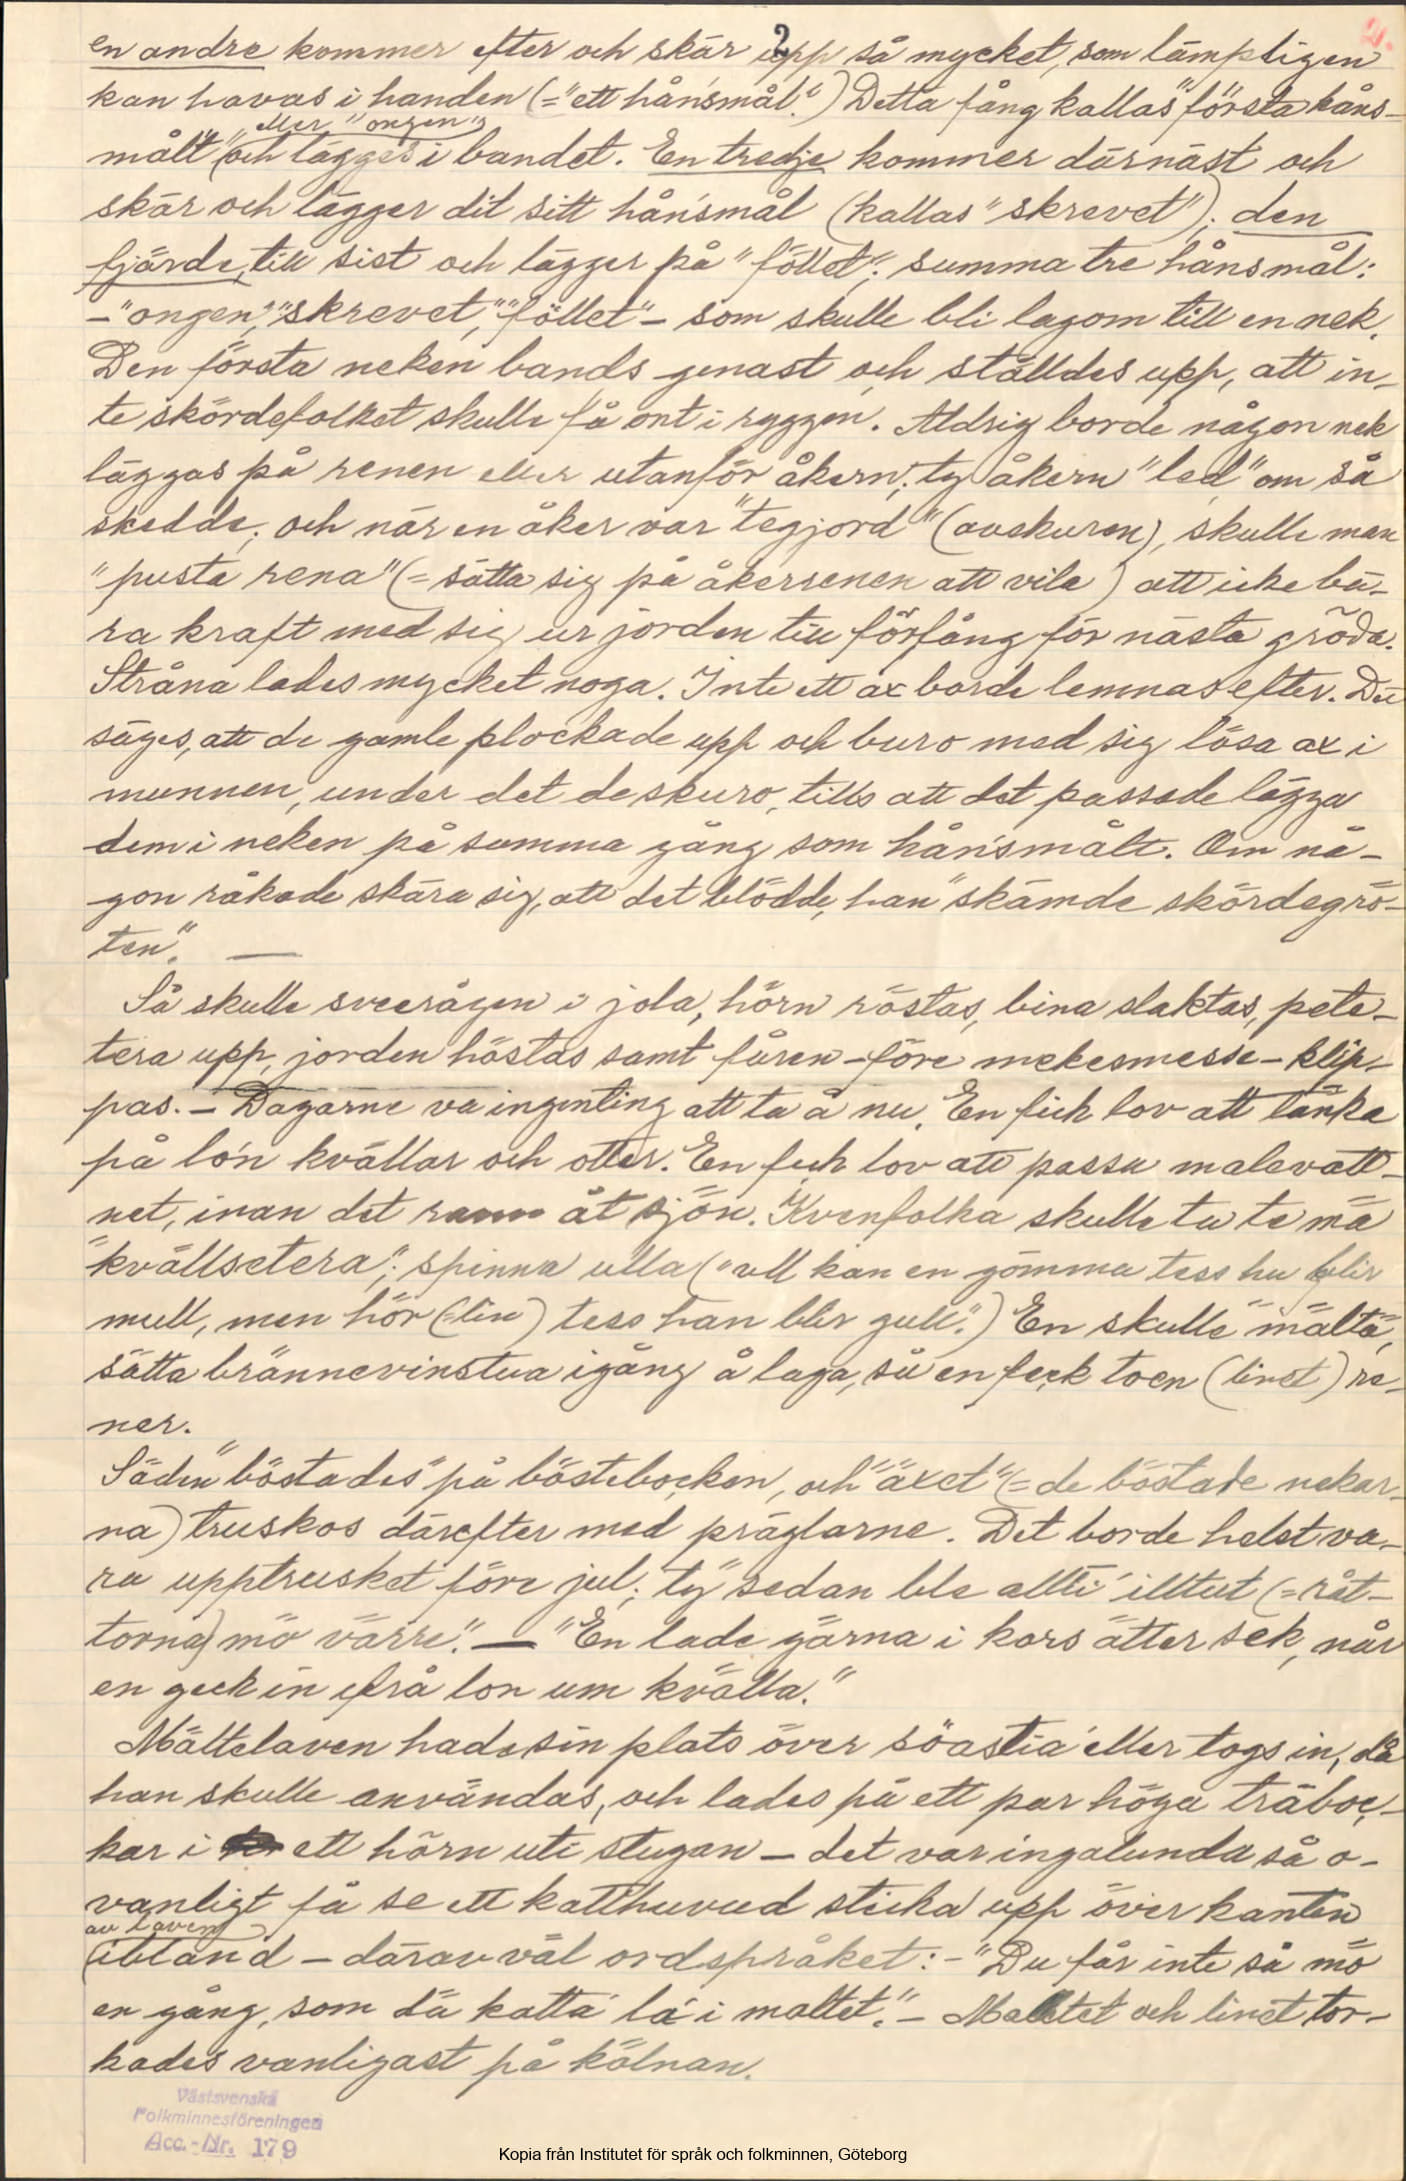 2
2.
en andre kommer efter och skär upp så mycket, som lämpligen
kan havas i handen (="ett hån'smål".) Detta fång kallas "första håns-
målt" (eller "ongen")
och lägges i bandet. En tredje kommer därnäst och
skär och lägger dit sitt hån'smål (kallas "skrevet"); den
fjärde, till sist och lägger på "föllet"; summa tre hånsmål:
– "ongen", "skrevet," "föllet" – som skulle bli lagom till en nek.
Den första neken bands genast och ställdes upp, att in-
te skördefolket skulle få ont i ryggen. Aldrig borde någon nek
läggas på renen eller utanför åkern; ty åkern "led" om så
skedde; och när en åker var "tegjord" (avskuren), skulle man
"pusta rena" (= sätta sig på åkerrenen att vila) att icke bä-
ra kraft med sig ur jorden till förfång för nästa gröda.
Stråna lades mycket noga. Inte ett ax borde lemnas efter. Det
säges, att de gamle plockade upp och buro med sig lösa ax i
munnen, under det de skuro, tills att det passade lägga
dem i neken på samma gång som hån'smålt. Om nå-
gon råkade skära sig, att det blödde, han "skämde skördegrö-
ten". —
Så skulle sveerågen i jola, hörn röstas, bina slaktas, pete-
tera upp, jorden höstas samt fåren – före mekesmesse – klip-
pas. – Dagarne va ingenting att ta å nu. En fick lov att tänka
på lo'n kvällar och otter. En fick lov att passa malevatt-
net, inan det rann åt sjön. Kvenfolka skulle ta te mä
"kvällsetera"; spinna ulla ("ull kan en gömma tess hu blir
mull, men hör (=lin) tess han blir gull".) En skulle "mälta",
sätta brännevinstua igång å laga, så en feck toen (linet) re-
ner.
Säden "böstades" på böstebocken, och "äxet" (= de böstade nekar-
na) truskos därefter med präglarne. Det borde helst va-
ra upptrusket före jul; ty "sedan ble allti' illtut (= råt-
torna) mö värre". — "En lade gärna i kors ätter sek, når
en geck in ifrå lon um kvälla."
Mältelaven hade sin plats över söastia eller togs in, då
han skulle användas, och lades på ett par höga träboc-
kar i ett hörn uti stugan – det var ingalunda så o-
vanligt få se ett katthuvud sticka upp över kanten
(av laven)
ibland – därav väl ordspråket: – "Du får inte så mö
en gång, som dä katta lä i maltet". – Maltet och linet tor-
kades vanligast på kölnan.
Västsvenska
Folkminnesföreningen
Acc.-Nr. 179
Kopia från Institutet för språk och folkminnen, Göteborg